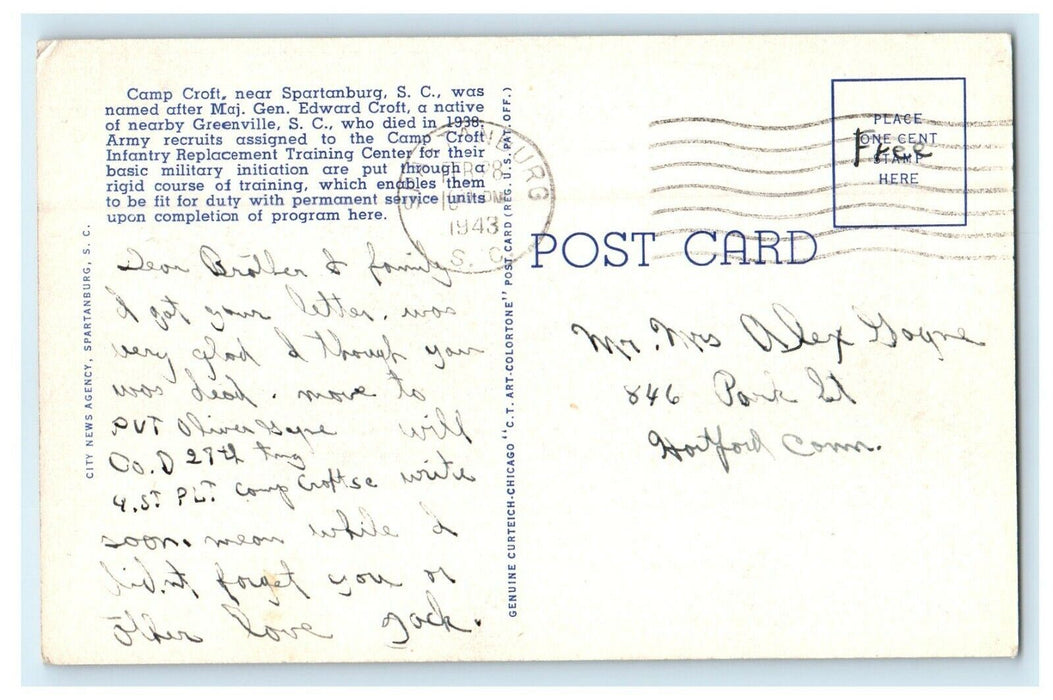 Camp Croft, near Spartanburg, S. C., was
named after Maj. Gen. Edward Croft, a native
of nearby Greenville, S. C., who died in 1938.
Army recruits assigned to the Camp Croft
Infantry Replacement Training Center for their
basic military initiation are put through a
rigid course of training, which enables them
to be fit for duty with permanent service units
upon completion of program here.
CITY NEWS AGENCY, SPARTANBURG, S. C.
Dear Brother & family
I got your letter. was
very glad I though your
was dead. move to
PVT Oliver will
Co. D 29th Tng
4.ST PLT. Camp Croft SC write
soon. mean while I
did.nt forget you or
other love Jack.
GENUINE CURTEICH-CHICAGO "C.T. ART-COLORTONE" POST CARD (REG. U.S. PAT. OFF.)
SPARTANBURG
28
1943
S. C.
POST CARD
PLACE
ONE CENT
STAMP
HERE
Free
Mr. Mrs Alex Goyne
846 Park St
Hartford Conn.